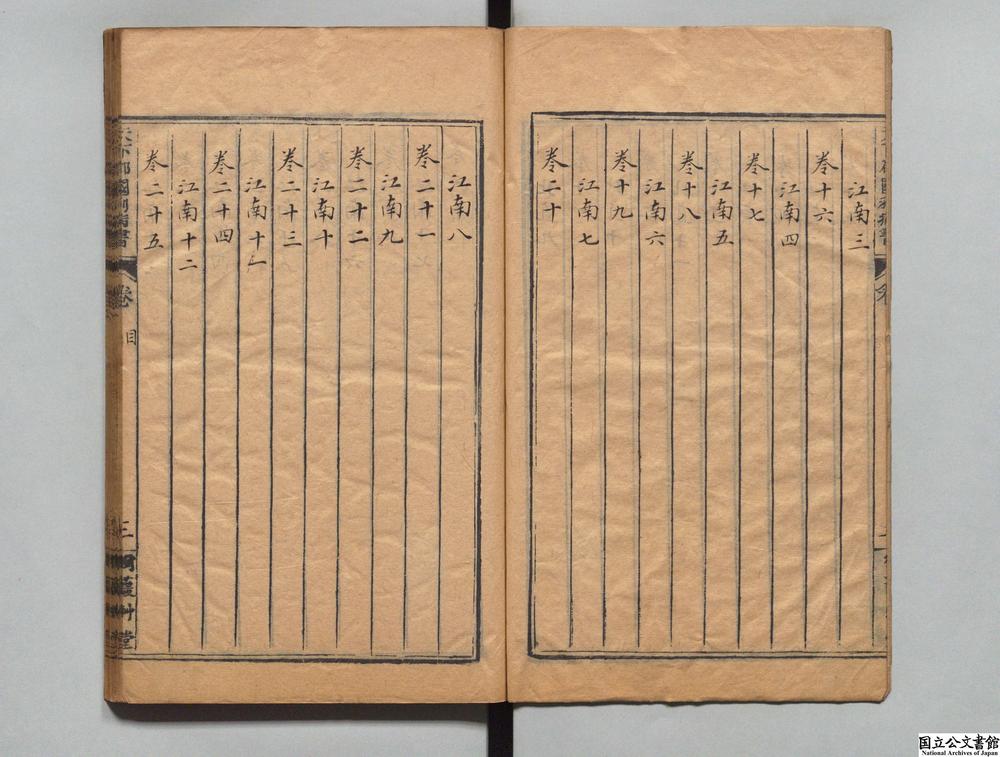 江南三
卷十六
江南四
卷十七
江南五
卷十八
江南六
卷十九
江南七
卷二十
江南八
卷二十一
江南九
卷二十二
江南十
卷二十三
江南十一
卷二十四
江南十二
卷二十五
卷
目
艸堂
国立公文書館
National Archives of Japan